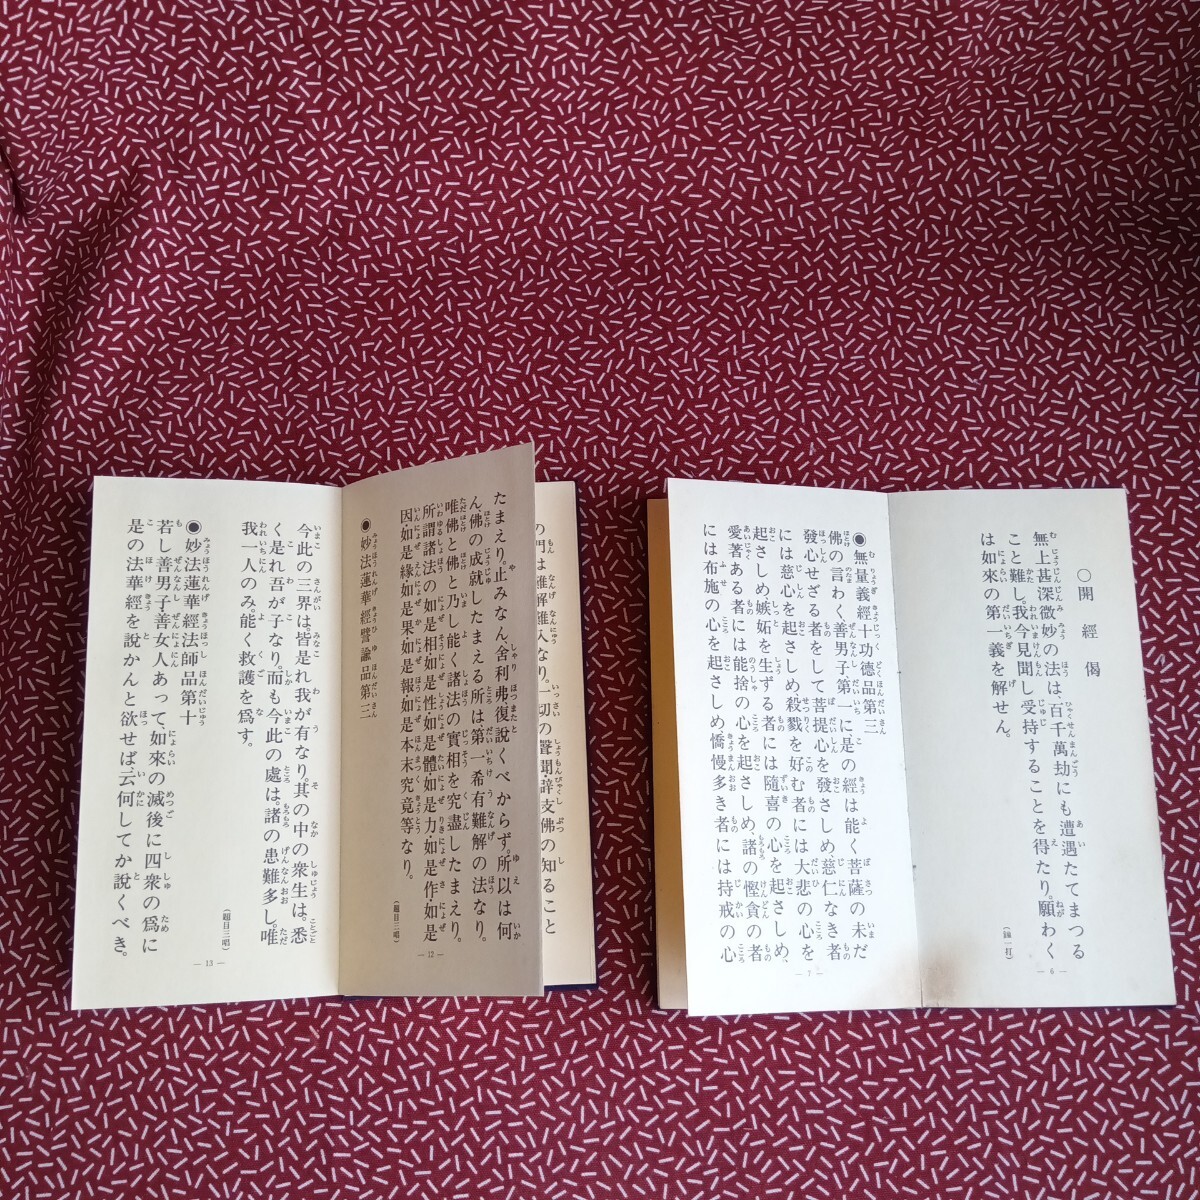 ○開經偈
無上甚深微妙の法は、百千萬劫にも遭遇たてまつる
こと難し。我今見聞し受持することを得たり。願わく
は如來の第一義を解せん。
(鐘一打)
― 6 ―
◉無量義經十功德品第三
佛の言わく善男子、第一に是の經は能く菩薩の未だ
發心せざる者をして菩提心を發さしめ、慈仁なき者
には慈心を起さしめ、殺戮を好む者には大悲の心を
起さしめ、嫉妬を生ずる者には隨喜の心を起さしめ、
愛著ある者には能捨の心を起さしめ、諸の慳貪の者
には布施の心を起さしめ、憍慢多き者には持戒の心
― 7 ―
の門は難解難入なり。一切の聲聞辟支佛の知ること
たまえり。止みなん、舍利弗復説くべからず。所以は何
ん、佛の成就したまえる所は第一希有難解の法なり。
唯佛と佛と乃し能く諸法の實相を究盡したまえり。
所謂諸法の如是相・如是性・如是體・如是力・如是作・如是
因・如是緣・如是果・如是報・如是本末究竟等なり。
(題目三唱)
◉妙法蓮華經譬諭品第三
― 12 ―
今此の三界は皆是れ我が有なり。其の中の衆生は。悉
く是れ吾が子なり。而も今此の處は。諸の患難多し。唯
我一人のみ。能く救護を爲す。
(題目三唱)
◉妙法蓮華經法師品第十
若し善男子善女人あって、如來の滅後に四衆の爲に
是の法華經を説かんと欲せば、云何してか説くべき。
― 13 ―